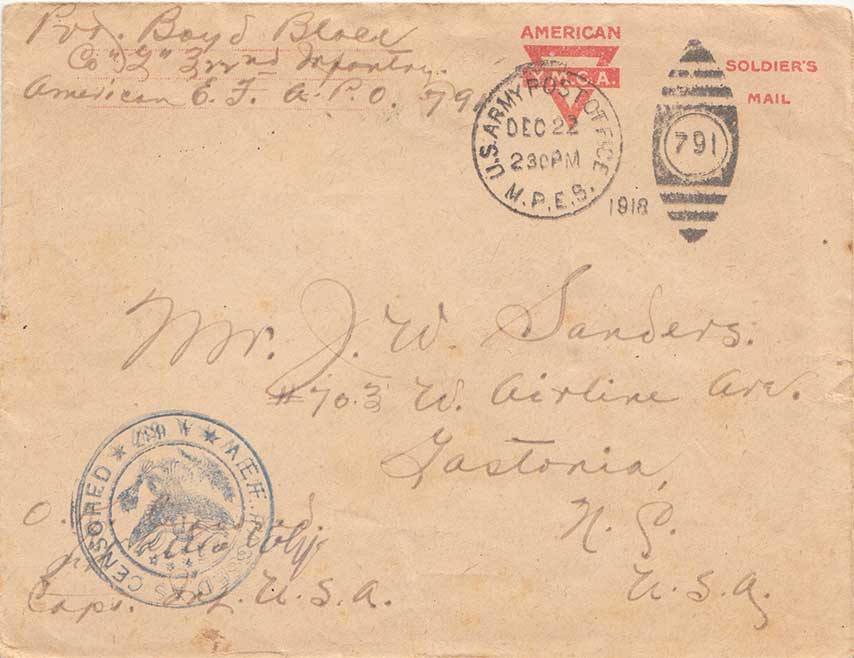 Pvt. Boyd
Co "G" 322nd Infantry.
American E. F. A.P.O. 791
AMERICAN
Y.M.C.A.
SOLDIER'S
MAIL
U.S. ARMY POST OFFICE
DEC 22
230PM
M.P.E.S.
1918
791
Mr. J. W. Sanders.
#703 W. Airline Ave.
Gastonia,
N. C.
U.S.A.
A.E.F. PASSED AS CENSORED
O.
Capt. Inf. U.S.A.